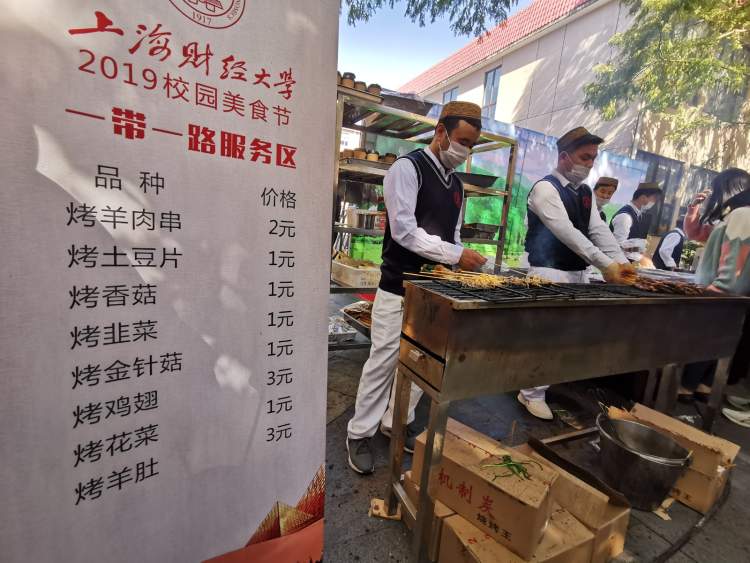 1917
上海财经大学
2019校园美食节
一带一路服务区
品种 价格
烤羊肉串 2元
烤土豆片 1元
烤香菇 1元
烤韭菜 1元
烤金针菇 1元
烤鸡翅 3元
烤花菜 1元
烤羊肚 3元
机制炭
烧烤王